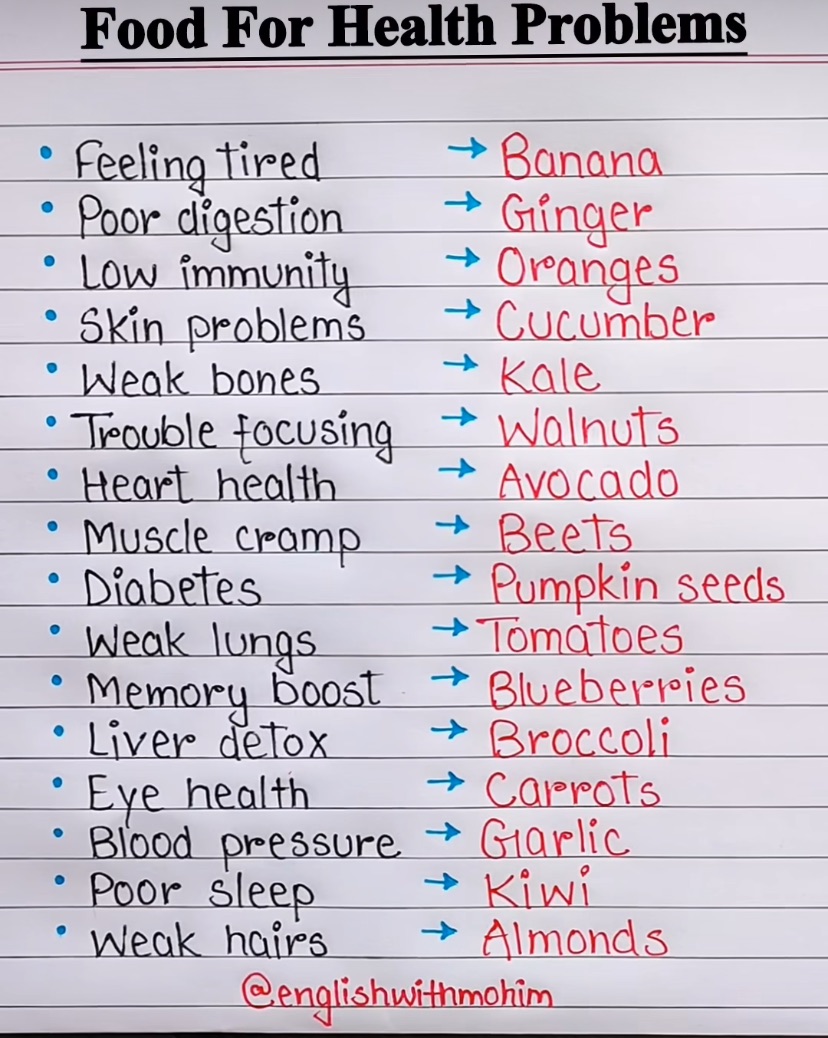 Food For Health Problems
• Feeling tired → Banana
• Poor digestion → Ginger
• Low immunity → Oranges
• Skin problems → Cucumber
• Weak bones → Kale
• Trouble focusing → Walnuts
• Heart health → Avocado
• Muscle cramp → Beets
• Diabetes → Pumpkin seeds
• Weak lungs → Tomatoes
• Memory boost → Blueberries
• Liver detox → Broccoli
• Eye health → Carrots
• Blood pressure → Garlic
• Poor sleep → Kiwi
• Weak hairs → Almonds
@englishwithmohim